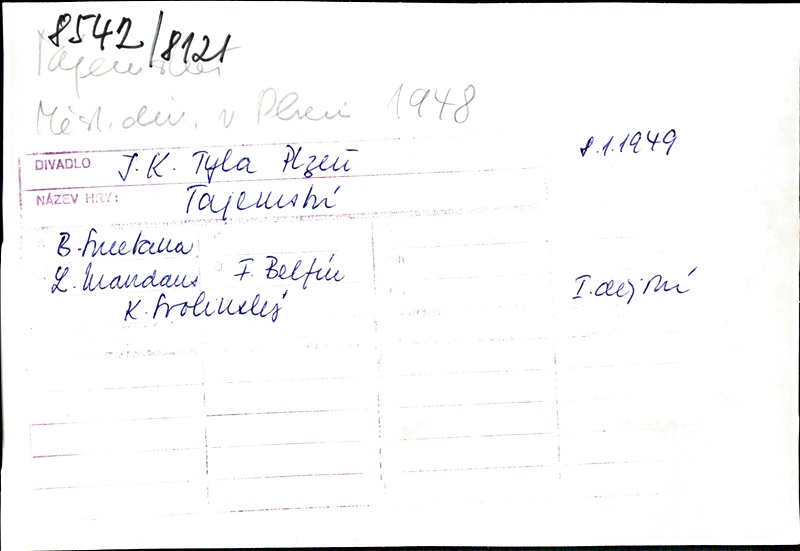 8542/8121
Tajemství
Měst. div. v Plzni 1948
DIVADLO J. K. Tyla Plzeň 8.1.1949
NÁZEV HRY: Tajemství
B. Smetana
L. Mandaus F. Belfín I. dějství
K.